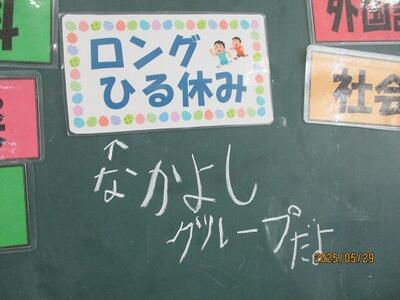 ロング
ひる休み
外国語
社会
↑
なかよし
グループだよ
2025/05/29